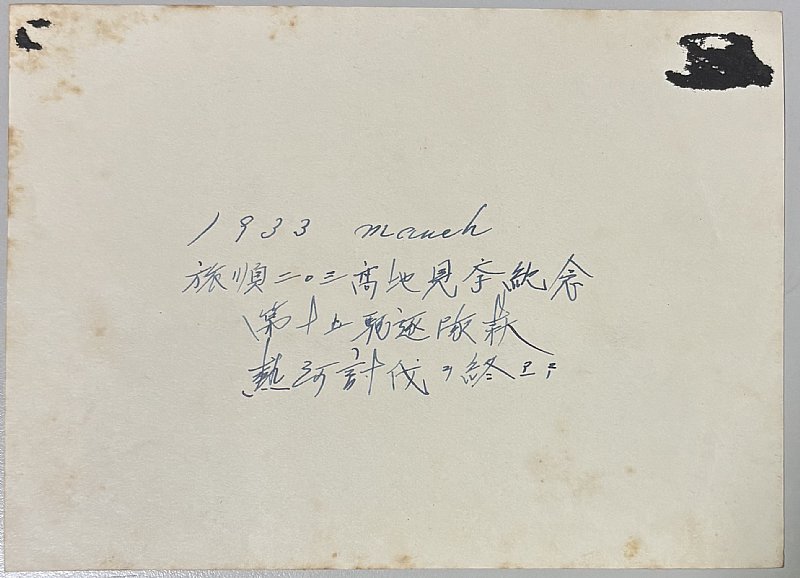 1933 march
旅順二〇三高地見学紀念
第十五駆逐隊萩
熱河討伐ヲ終ヱテ